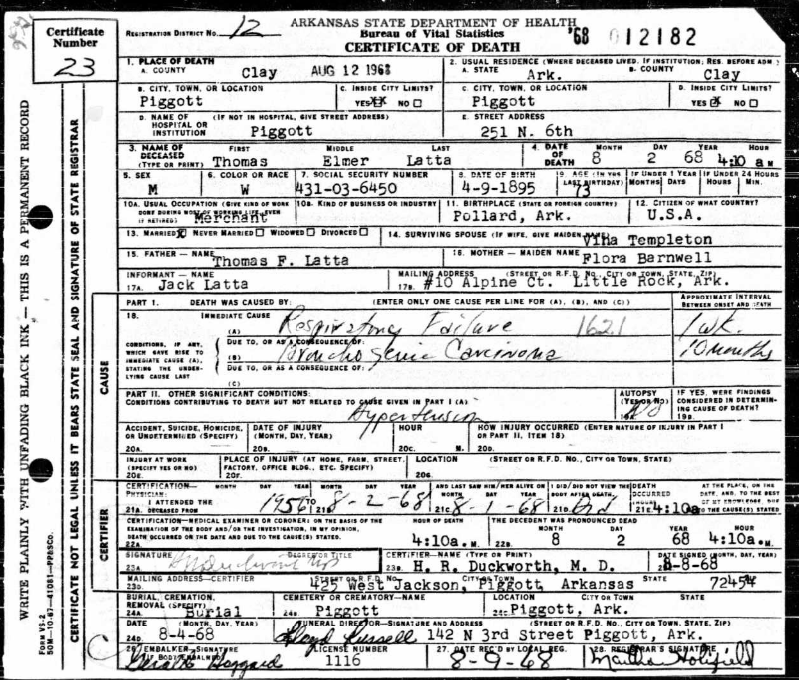 ARKANSAS STATE DEPARTMENT OF HEALTH
Bureau of Vital Statistics
CERTIFICATE OF DEATH
REGISTRATION DISTRICT NO. 12
'68 012182
Certificate Number
23
1. PLACE OF DEATH
A. COUNTY Clay AUG 12 1968
2. USUAL RESIDENCE (WHERE DECEASED LIVED. IF INSTITUTION; RES. BEFORE ADM.)
A. STATE Ark. B. COUNTY Clay
B. CITY, TOWN, OR LOCATION Piggott
C. INSIDE CITY LIMITS? YES XX NO
C. CITY, TOWN, OR LOCATION Piggott
D. INSIDE CITY LIMITS? YES X NO
D. NAME OF HOSPITAL OR INSTITUTION (IF NOT IN HOSPITAL, GIVE STREET ADDRESS) Piggott
E. STREET ADDRESS 251 N. 6th
3. NAME OF DECEASED (TYPE OR PRINT) FIRST Thomas MIDDLE Elmer LAST Latta
4. DATE OF DEATH MONTH 8 DAY 2 YEAR 68 HOUR 4:10 a M
5. SEX M
6. COLOR OR RACE W
7. SOCIAL SECURITY NUMBER 431-03-6450
8. DATE OF BIRTH 4-9-1895
9. AGE (IN YRS LAST BIRTHDAY) 73
IF UNDER 1 YEAR MONTHS DAYS
IF UNDER 24 HOURS HOURS MIN.
10A. USUAL OCCUPATION (GIVE KIND OF WORK DONE DURING MOST OF WORKING LIFE, EVEN IF RETIRED) Merchant
10B. KIND OF BUSINESS OR INDUSTRY
11. BIRTHPLACE (STATE OR FOREIGN COUNTRY) Pollard, Ark.
12. CITIZEN OF WHAT COUNTRY? U.S.A.
13. MARRIED X NEVER MARRIED WIDOWED DIVORCED
14. SURVIVING SPOUSE (IF WIFE, GIVE MAIDEN NAME) Vina Templeton
15. FATHER - NAME Thomas F. Latta
16. MOTHER - MAIDEN NAME Flora Barnwell
INFORMANT - NAME
17A. Jack Latta
MAILING ADDRESS (STREET OR R.F.D. NO., CITY OR TOWN, STATE, ZIP)
17B. #10 Alpine Ct. Little Rock, Ark.
CAUSE
PART 1. DEATH WAS CAUSED BY: (ENTER ONLY ONE CAUSE PER LINE FOR (A), (B), AND (C))
APPROXIMATE INTERVAL BETWEEN ONSET AND DEATH
18. IMMEDIATE CAUSE
(A) Respiratory Failure 1621 1 wk.
CONDITIONS, IF ANY, WHICH GAVE RISE TO IMMEDIATE CAUSE (A), STATING THE UNDERLYING CAUSE LAST
DUE TO, OR AS A CONSEQUENCE OF:
(B) Bronchogenic Carcinoma 10 months
DUE TO, OR AS A CONSEQUENCE OF:
(C)
PART II. OTHER SIGNIFICANT CONDITIONS:
CONDITIONS CONTRIBUTING TO DEATH BUT NOT RELATED TO CAUSE GIVEN IN PART I (A)
Hypertension
AUTOPSY (YES OR NO) 19A. No
IF YES, WERE FINDINGS CONSIDERED IN DETERMINING CAUSE OF DEATH? 19B.
ACCIDENT, SUICIDE, HOMICIDE, OR UNDETERMINED (SPECIFY) 20A.
DATE OF INJURY (MONTH, DAY, YEAR) 20B.
HOUR 20C. M.
HOW INJURY OCCURRED (ENTER NATURE OF INJURY IN PART I OR PART II, ITEM 18) 20D.
INJURY AT WORK (SPECIFY YES OR NO) 20E.
PLACE OF INJURY (AT HOME, FARM, STREET, FACTORY, OFFICE BLDG., ETC. SPECIFY) 20F.
LOCATION (STREET OR R.F.D. NO., CITY OR TOWN, STATE) 20G.
CERTIFIER
CERTIFICATION- PHYSICIAN: MONTH DAY YEAR MONTH DAY YEAR
I ATTENDED THE
21A. DECEASED FROM 1956 TO 21B. 8-2-68
AND LAST SAW HIM/HER ALIVE ON MONTH DAY YEAR 21C. 8-1-68
I DID/DID NOT VIEW THE BODY AFTER DEATH. 21D. did
DEATH OCCURRED (HOUR) 21E. 4:10a
AT THE PLACE, ON THE DATE, AND, TO THE BEST OF MY KNOWLEDGE, DUE TO THE CAUSE(S) STATED
CERTIFICATION-MEDICAL EXAMINER OR CORONER: ON THE BASIS OF THE EXAMINATION OF THE BODY AND/OR THE INVESTIGATION, IN MY OPINION, DEATH OCCURRED ON THE DATE AND DUE TO THE CAUSE(S) STATED.
22A. HOUR OF DEATH 4:10a. M.
THE DECEDENT WAS PRONOUNCED DEAD
22B. MONTH 8 DAY 2 YEAR 68 HOUR 4:10a. M
SIGNATURE DEGREE OR TITLE
23A.
CERTIFIER-NAME (TYPE OR PRINT)
23B. H. R. Duckworth, M. D.
DATE SIGNED (MONTH, DAY, YEAR) 8-8-68
MAILING ADDRESS-CERTIFIER STREET OR R.F.D. NO. CITY OR TOWN STATE
23D. 425 West Jackson, Piggott, Arkansas 72454
BURIAL, CREMATION, REMOVAL (SPECIFY)
24A. Burial
CEMETERY OR CREMATORY-NAME
24B. Piggott
LOCATION CITY OR TOWN STATE
24C. Piggott, Ark.
DATE (MONTH, DAY, YEAR)
24D. 8-4-68
FUNERAL DIRECTOR-SIGNATURE AND ADDRESS (STREET OR R.F.D. NO., CITY OR TOWN, STATE, ZIP)
Lloyd Russell 142 N 3rd Street Piggott, Ark.
26 EMBALKER-SIGNATURE (IF BODY EMBALMED) Gerald Hoggard
LICENSE NUMBER 1116
27. DATE REC'D BY LOCAL REG. 8-9-68
28. REGISTRAR'S SIGNATURE Martha Holifield
WRITE PLAINLY WITH UNFADING BLACK INK - THIS IS A PERMANENT RECORD
CERTIFICATE NOT LEGAL UNLESS IT BEARS STATE SEAL AND SIGNATURE OF STATE REGISTRAR
FORM VS-2
50M-10-67-41081-PPBSCO.